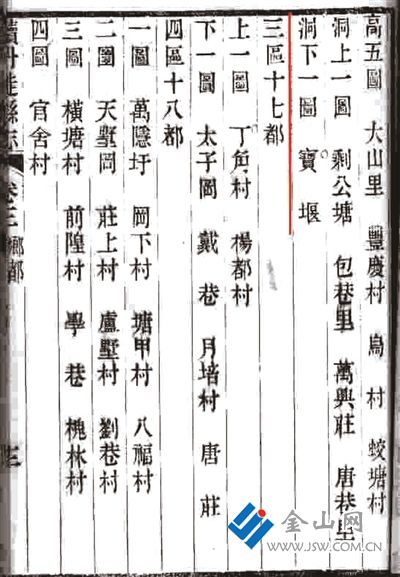 高五圖 大山里 豐慶村 烏村 蛟塘村
洞上一圖 剩公塘 包巷里 萬興莊 唐巷里
洞下一圖 寶堰
三區十七都
上一圖 丁角村 楊都村
下一圖 太子岡 戴巷 月培村 唐莊
四區十八都
一圖 萬隱圩 岡下村 塘甲村 八福村
二圖 天墅岡 莊上村 盧墅村 劉巷村
三圖 橫塘村 前隍村 學巷 槐林村
四圖 官舍村
續丹徒縣志 卷二 鄉都
金山网
www.JSW.COM.CN